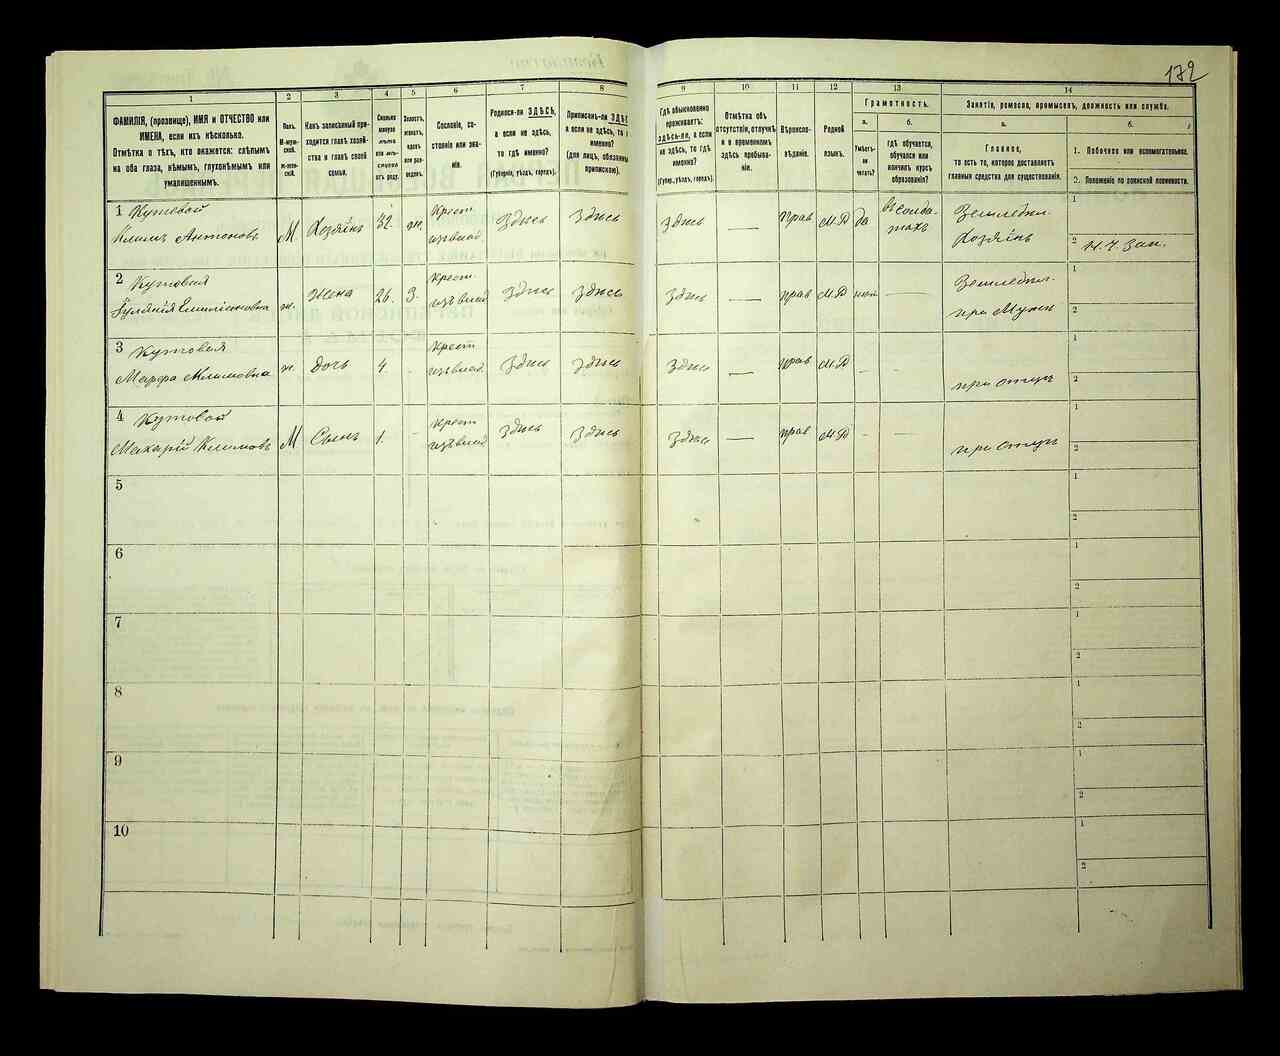 172
1 2 3 4 5 6 7 8 9 10 11 12 13 14
ФАМИЛІЯ, (прозвище), ИМЯ и ОТЧЕСТВО или
ИМЕНА, если ихъ нѣсколько.
Отмѣтка о тѣхъ, кто окажется: слѣпымъ
на оба глаза, нѣмымъ, глухонѣмымъ или
умалишеннымъ.
Полъ.
М-муж-
ской.
ж-жен-
ской.
Какъ записанный при-
ходится главѣ хозяй-
ства и главѣ своей
семьи.
Сколько
минуло
лѣтъ
или мѣ-
сяцевъ
отъ роду.
Холостъ,
женатъ,
вдовъ
или раз-
веденъ.
Сословіе, со-
стояніе или зва-
ніе.
Родился-ли ЗДѢСЬ,
а если не здѣсь,
то гдѣ именно?
(Губернія, уѣздъ, городъ).
Приписанъ-ли ЗДѢСЬ,
а если не здѣсь, то гдѣ
именно?
(для лицъ, обязанныхъ
припискою).
Гдѣ обыкновенно
проживаетъ:
здѣсь-ли, а если
не здѣсь, то гдѣ
именно?
(Губер., уѣздъ, городъ).
Отмѣтка объ
отсутствіи, отлучкѣ
и о временномъ
здѣсь пребыва-
ніи.
Вѣроиспо-
вѣданіе.
Родной
языкъ.
Грамотность.
а.
Умѣетъ-
ли
читать?
б.
Гдѣ обучается,
обучался или
кончилъ курсъ
образованія?
Занятіе, ремесло, промыселъ, должность или служба.
а.
Главное,
то есть то, которое доставляетъ
главныя средства для существованія.
б.
1. Побочное или вспомогательное.
2. Положеніе по воинской повинности.
1 Кутовой
Климъ Антоновъ М Хозяинъ 32. ж. Крест. изъ влад. Здѣсь Здѣсь Здѣсь — прав М.Р да въ солдатахъ Земледѣл. Хозяинъ
1
2
2 Кутовая
ж. Жена 26. З. Крест. изъ влад. Здѣсь Здѣсь Здѣсь — прав М.Р нѣт — Земледѣл. при мужѣ
1
2
3 Кутовая
Марфа Климовна ж. Дочь 4 - Крест изъ влад. Здѣсь Здѣсь Здѣсь — прав М.Р - - при отцѣ
1
2
4 Кутовой
Макарій Климовъ М Сынъ 1. - Крест изъ влад Здѣсь Здѣсь Здѣсь — прав М.Р - - при отцѣ
1
2
5
1
2
6
1
2
7
1
2
8
1
2
9
1
2
10
1
2